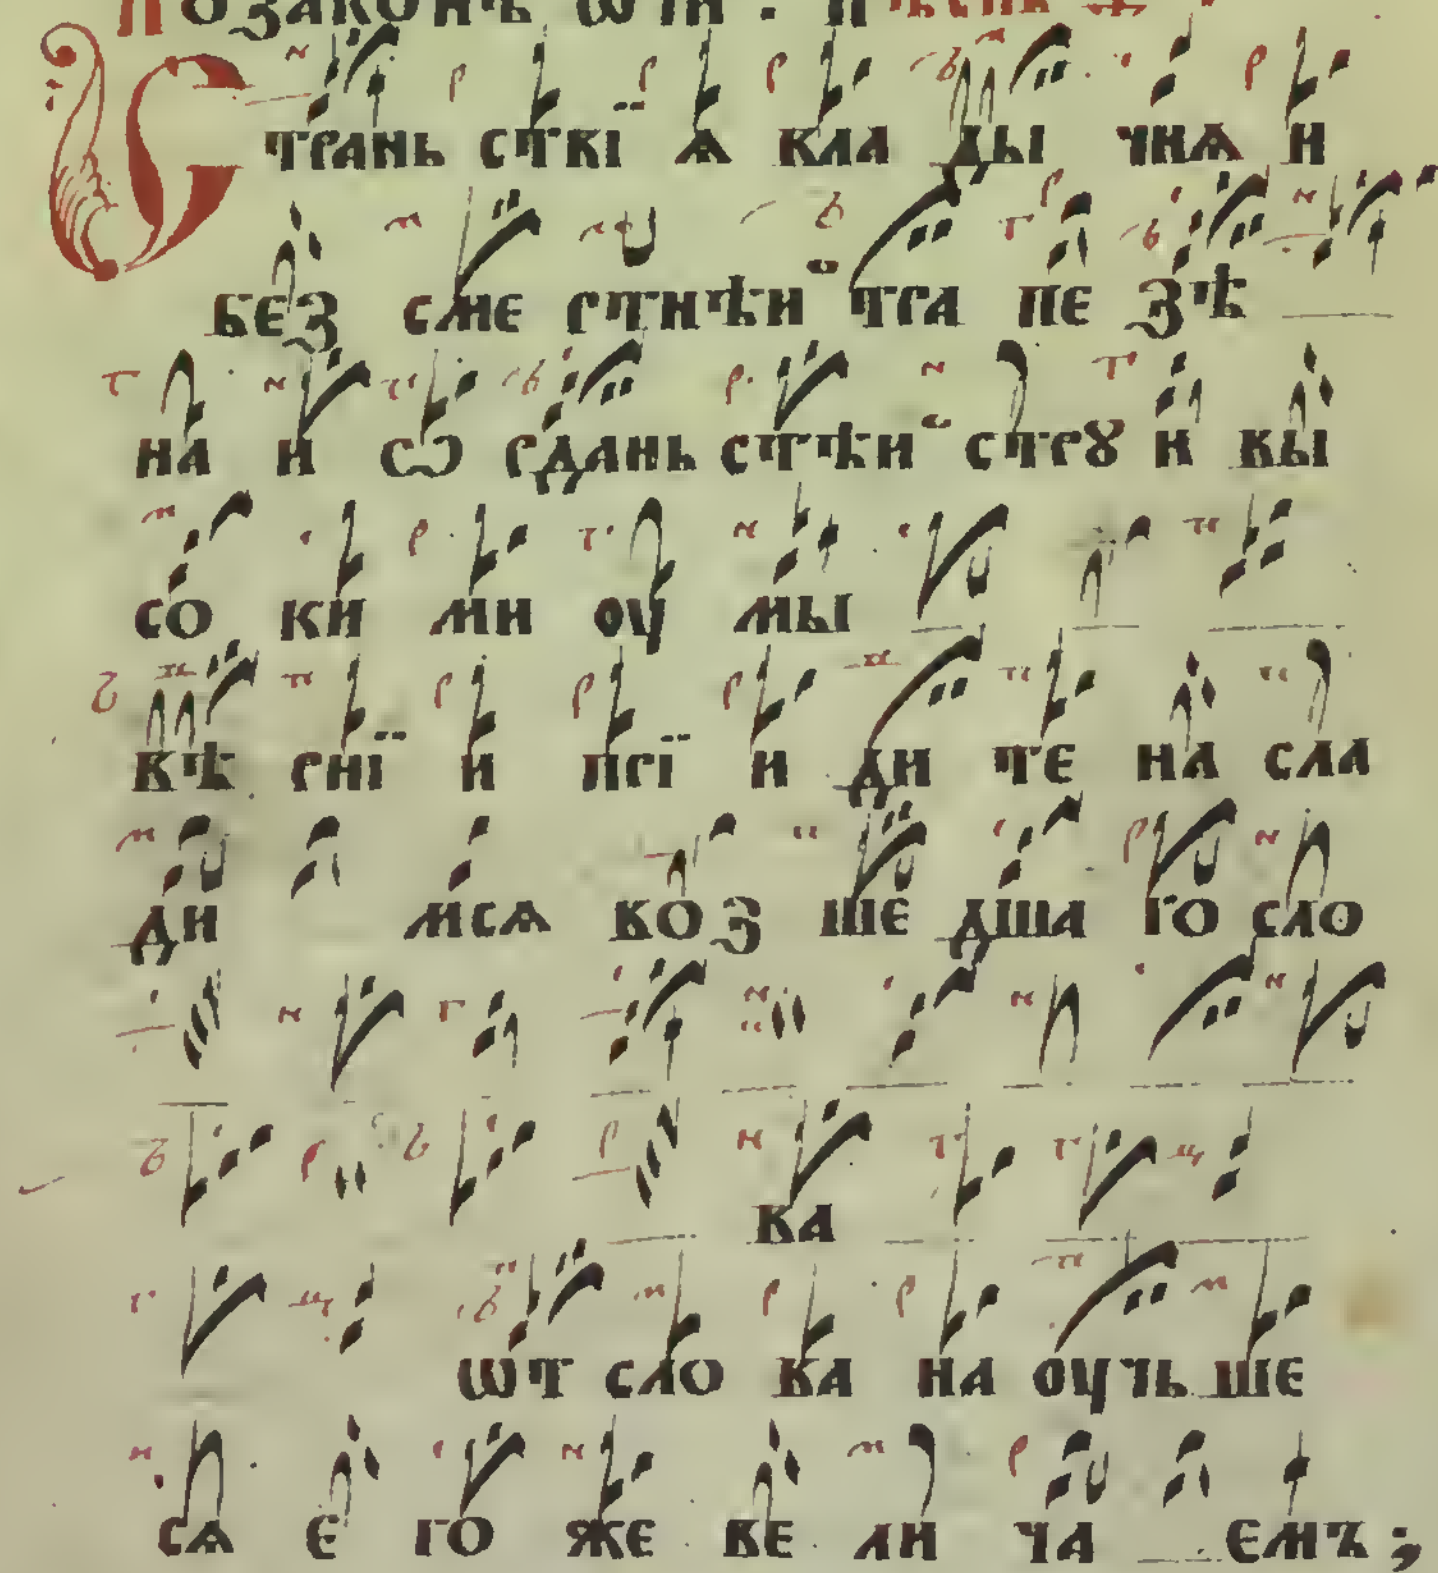 Странь сткї ѧ вла ды чнѧ и
без сме ртнѣи тра пе зѣ
на и со рдань стѣи стрꙋ и вы
со ки ми оу мы
вѣ рнї и прї и ди те на сла
ди мсѧ во з ше дша го сло
ва
ѿт сло ва на оучь ше
сѧ е го же ве ли ча емъ;